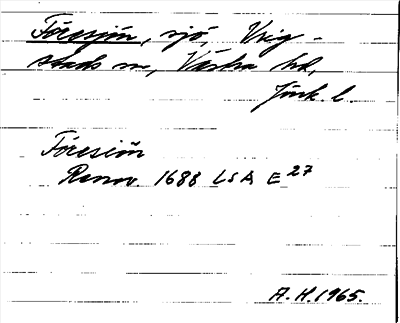 Föresjön, sjö, Vrig-
stads sn, Västra hd,
Jönk. l.
Föresiön
Renov. 1688 LSA E 27
A.H. 1965.